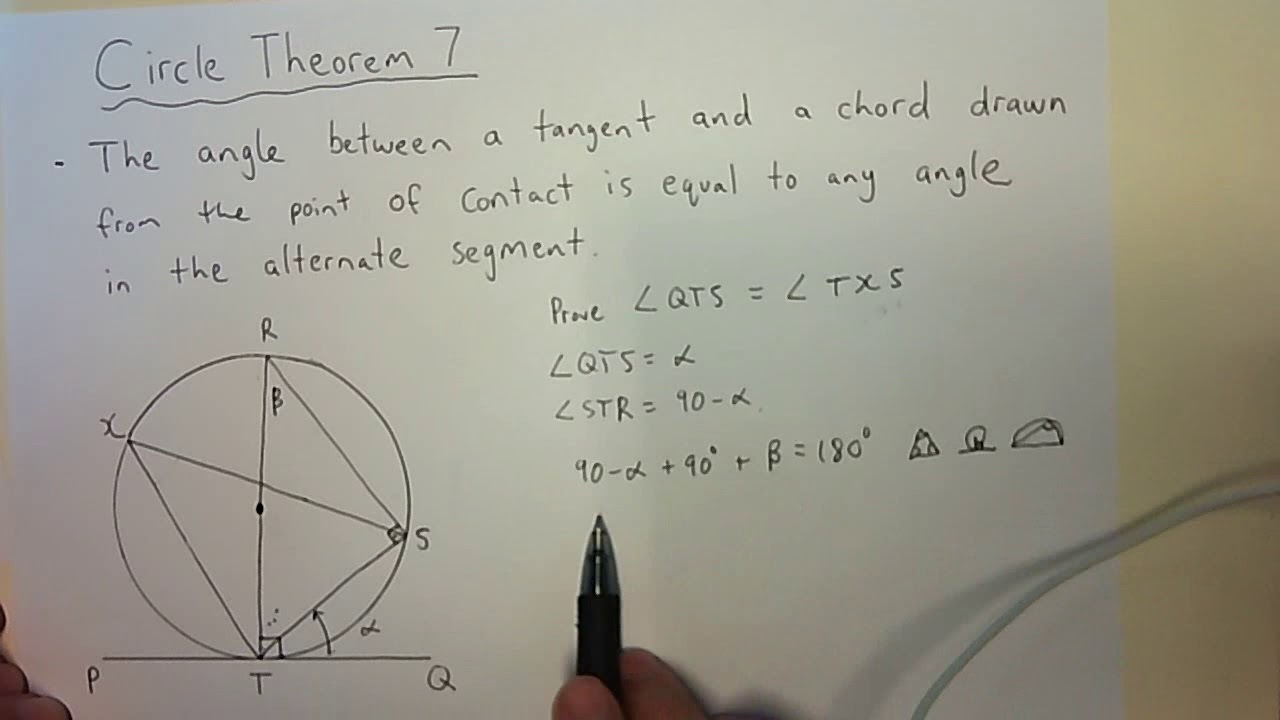 Circle Theorem 7
- The angle between a tangent and a chord drawn
from the point of contact is equal to any angle
in the alternate segment.
Prove ∠QTS = ∠TXS
∠QTS = α
∠STR = 90-α
90-α + 90° + β = 180°
R
β
X
S
α
P
T
Q